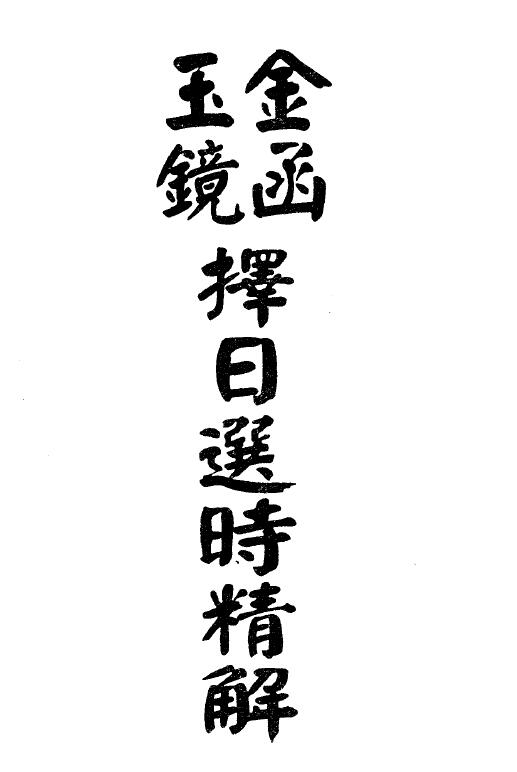 金函
玉鏡
擇日選時精解